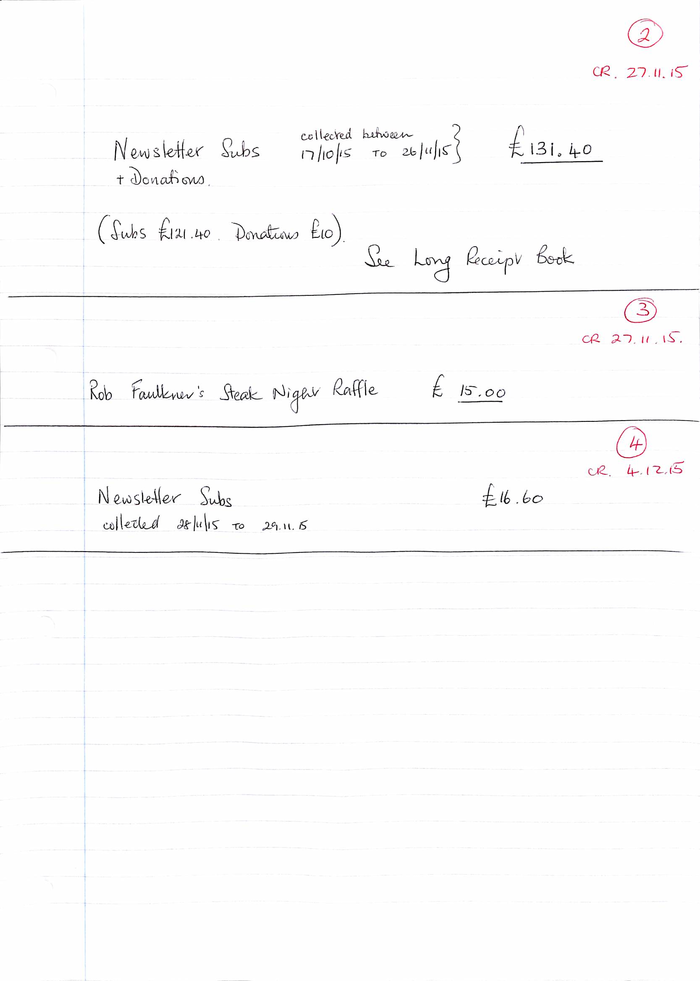 2
CR. 27.11.15
Newsletter Subs collected between 17/10/15 To 26/11/15} £131.40
+ Donations.
(Subs £121.40. Donations £10).
See Long Receipt Book
3
CR 27.11.15.
Rob Faulkner's Steak Night Raffle £ 15.00
4
CR. 4.12.15
Newsletter Subs £16.60
collected 28/11/15 To 29.11.15